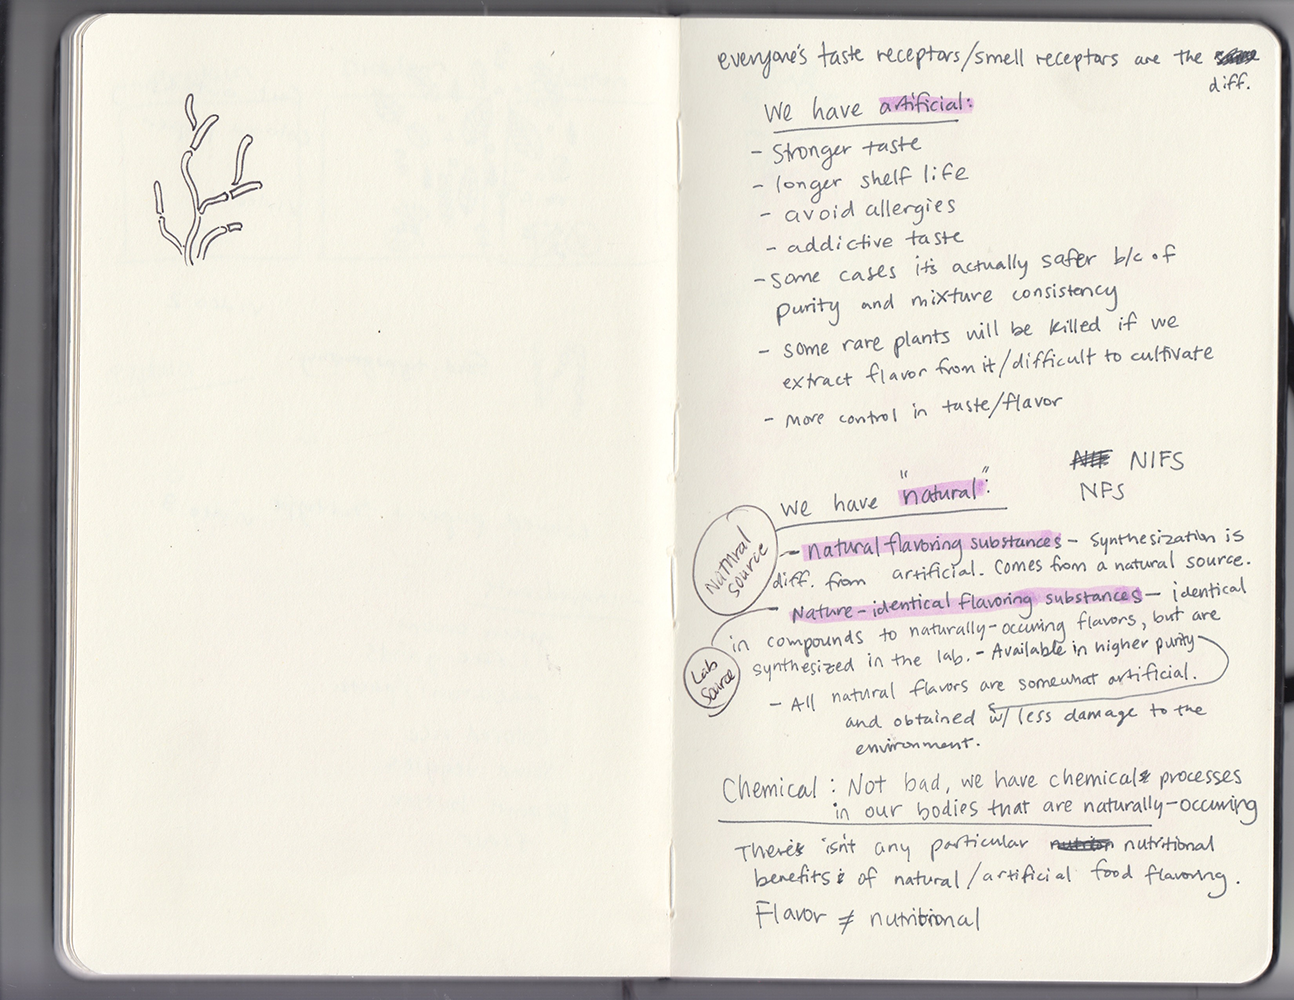 everyone's taste receptors/smell receptors are the
diff.
We have artificial:
- Stronger taste
- longer shelf life
- avoid allergies
- addictive taste
- some cases it's actually safer b/c of
purity and mixture consistency
- some rare plants will be killed if we
extract flavor from it/difficult to cultivate
- more control in taste/flavor
NIFS
NFS
We have "natural":
Natural
source
- natural flavoring substances - synthesization is
diff. from artificial. Comes from a natural source.
Nature-identical flavoring substances - identical
in compounds to naturally-occuring flavors, but are
synthesized in the lab. - Available in higher purity
Lab
source
- All natural flavors are somewhat artificial.
and obtained w/ less damage to the
environment.
Chemical: Not bad, we have chemical processes
in our bodies that are naturally-occuring
There's isn't any particular nutritional
benefits of natural/artificial food flavoring.
Flavor ≠ nutritional